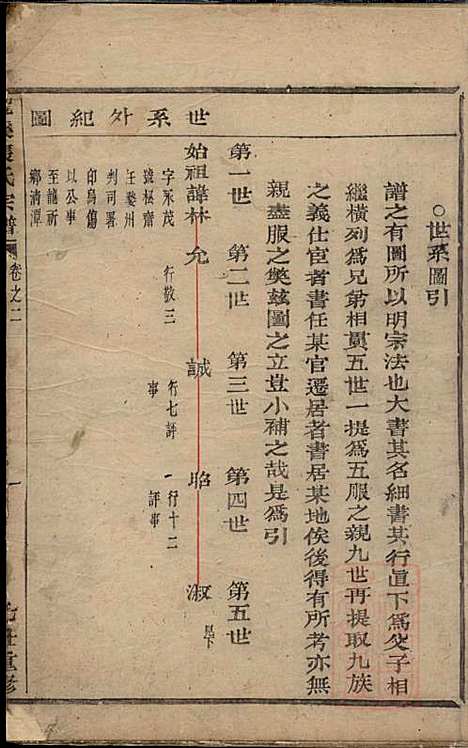 ○世系圖引
譜之有圖所以明宗法也大書其名細書其行直下為父子相
繼橫列為兄弟相貫五世一提為五服之親九世再提取九族
之義仕宦者書任某官遷居者書居某地俟後得有所考亦無
親盡服之獘玆圖之立豈小補之哉是為引
世系外紀圖
第一世 第二世 第三世 第四世 第五世
始祖諱林 允 誠 昭 淑
字永茂
號極齋
任婺州
判司署
印烏傷
以公事
至龍祈
鄉清潭
行敬三
行七評
事
行十二
評事
見下
氏宗譜 卷之二 一
重修